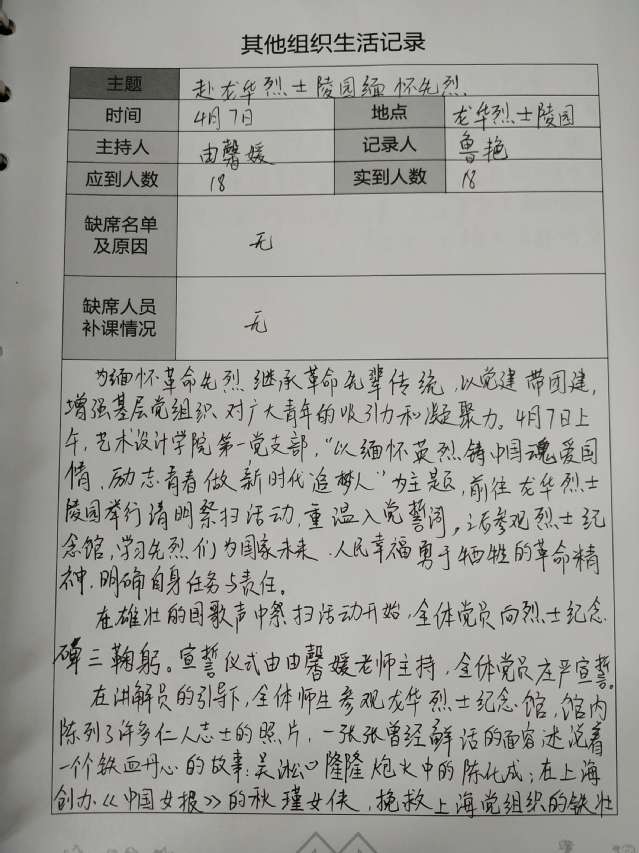 其他组织生活记录
主题 赴龙华烈士陵园缅怀先烈
时间 4月7日 地点 龙华烈士陵园
主持人 由馨媛 记录人 鲁艳
应到人数 18 实到人数 18
缺席名单
及原因 无
缺席人员
补课情况 无
为缅怀革命先烈 继承革命先辈传统,以党建带团建,
增强基层党组织对广大青年的吸引力和凝聚力。4月7日上
午,艺术设计学院第一党支部,“以缅怀英烈铸中国魂爱国
情,励志青春做新时代追梦人”为主题,前往龙华烈士
陵园举行清明祭扫活动,重温入党誓词,之后参观烈士纪
念馆,学习先烈们为国家未来、人民幸福勇于牺牲的革命精
神,明确自身任务与责任。
在雄壮的国歌声中祭扫活动开始,全体党员向烈士纪念
碑三鞠躬。宣誓仪式由由馨媛老师主持,全体党员庄严宣誓。
在讲解员的引导下,全体师生参观龙华烈士纪念馆,馆内
陈列了许多仁人志士的照片,一张张曾经鲜活的面容述说着
一个个铁血丹心的故事:吴淞口隆隆炮火中的陈化成;在上海
创办《中国女报》的秋瑾女侠,挽救上海党组织的铁壮